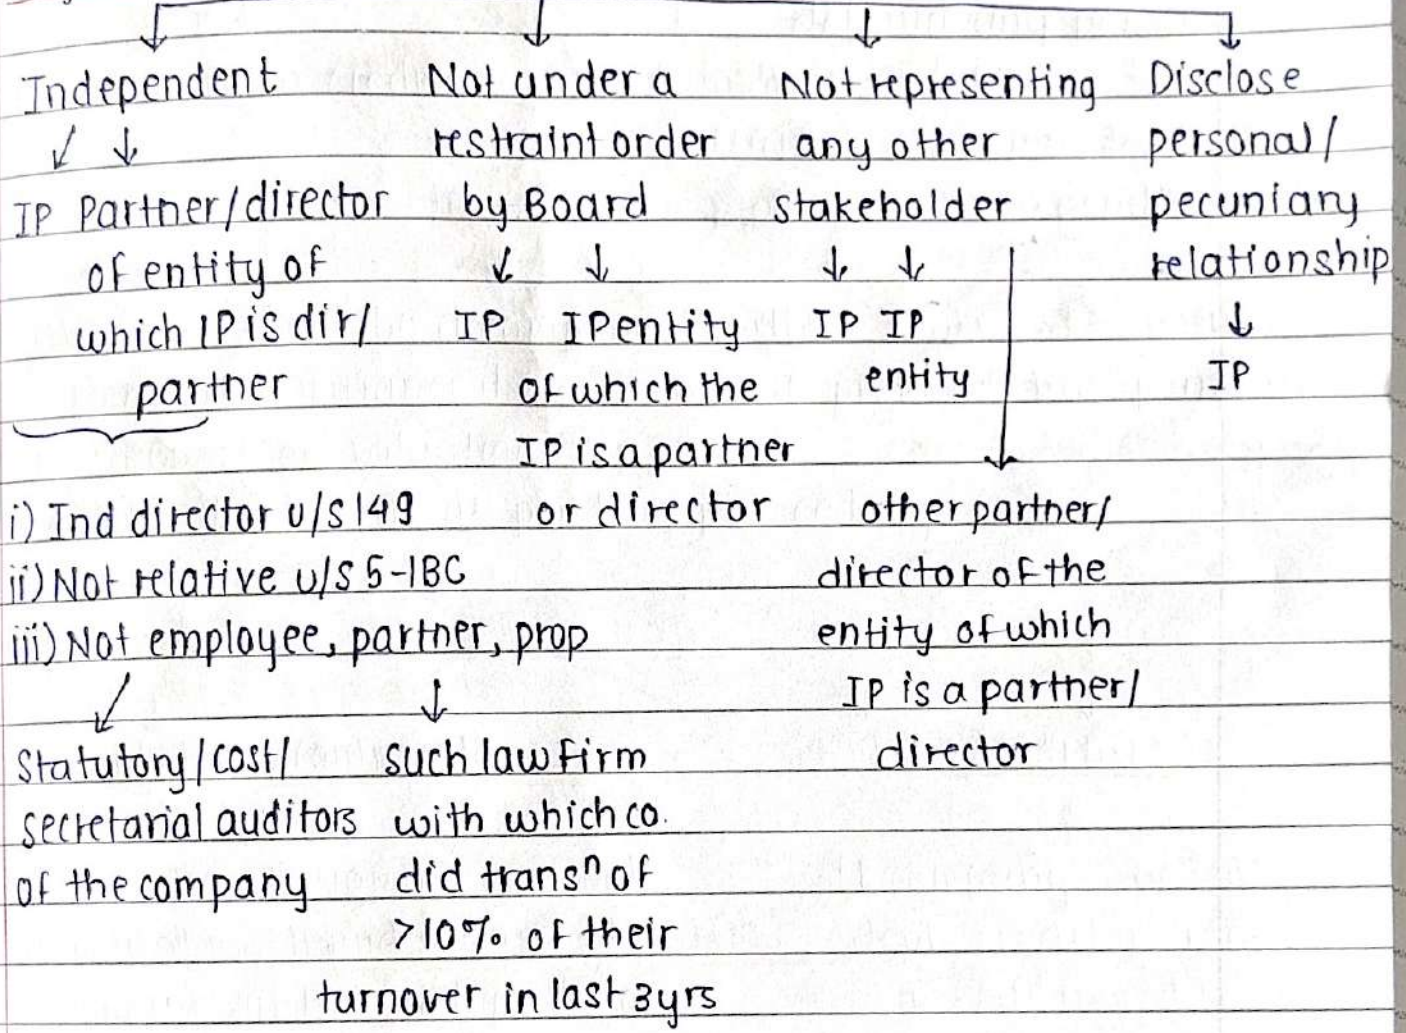 Independent
IP Partner/director
of entity of
which IP is dir/
partner
i) Ind director u/s 149
ii) Not relative u/s 5-IBC
iii) Not employee, partner, prop
Statutory/cost/
secretarial auditors
of the company
such law firm
with which co.
did transⁿ of
>10% of their
turnover in last 3yrs
Not under a
restraint order
by Board
IP IP entity
of which the
IP is a partner
or director
Not representing
any other
stakeholder
IP IP
entity
other partner/
director of the
entity of which
IP is a partner/
director
Disclose
personal/
pecuniary
relationship
IP